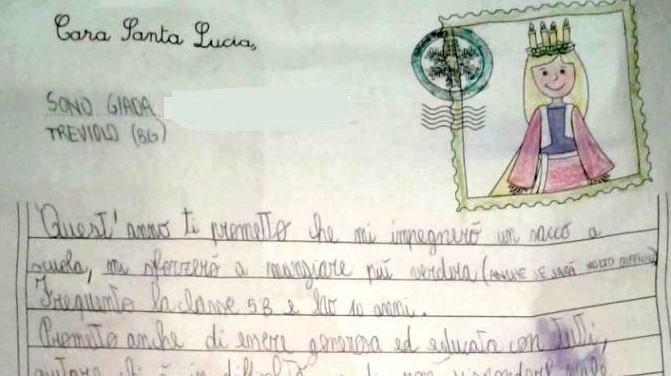 Cara Santa Lucia,
SONO GIADA
TREVIOLO (BG)
Quest'anno ti prometto che mi impegnerò un sacco a
scuola, mi sforzerò a mangiare più verdura (ANCHE SE SARÀ MOLTO DIFFICILE)
Frequento la classe 5B e ho 10 anni.
Prometto anche di essere generosa ed educata con tutti,
aiutare chi è in difficoltà non rispondere male